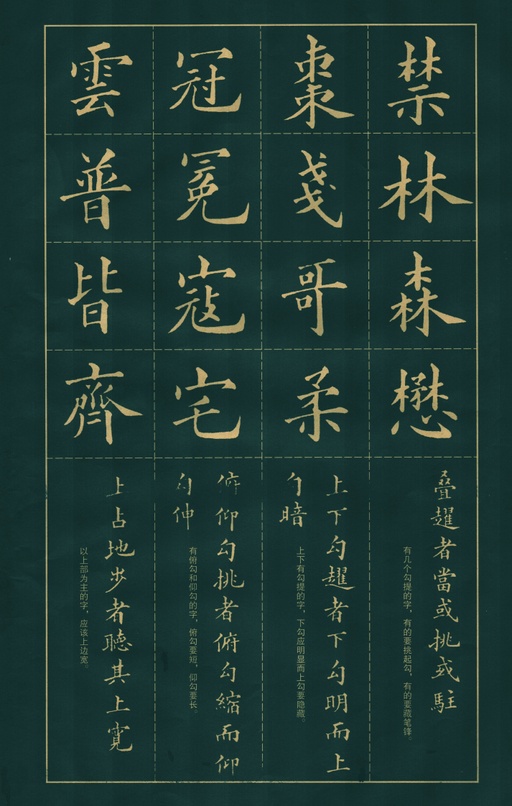 禁
林
森
懋
疊趯者當或挑或駐
有几个勾提的字，有的要挑起勾，有的要藏笔锋。
棗
戔
哥
柔
上下勾趯者下勾明而上
勹暗
上下有勾提的字，下勾应明显而上勾要隐藏。
冠
冕
寇
宅
俯仰勾挑者俯勾縮而仰
勾伸
有俯勾和仰勾的字，俯勾要短，仰勾要长。
雲
普
皆
齊
上占地步者聽其上寬
以上部为主的字，应该上边宽。